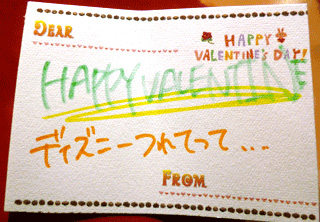 DEAR
HAPPY
VALENTINE'S DAY!
HAPPY VALENTINE
ディズニーつれてって...
FROM